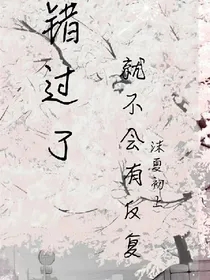 错过了
就不会有反复
沫夏初上